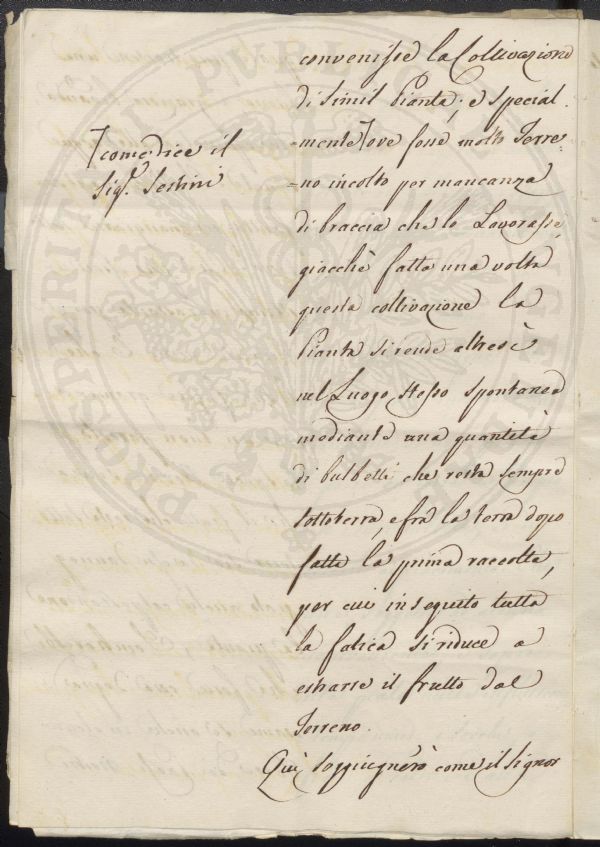 convenisse la Coltivazione
di simil Pianta; e special-
=mente ⌈ove fosse molto Terre=
=no incolto per mancanza
di braccia che lo Lavorasse,
giacchè fatta una volta
questa coltivazione la
Pianta si rende altresì
nel Luogo stesso spontanea
mediante una quantità
di bulbetti che resta sempre
sottoterra, e frà la terra dopo
fatta la prima raccolta,
per cui in seguito tutta
la fatica si riduce a
estrarre il frutto dal
Terreno.
Quì soggiugnerò come il Signor
⌈come dice il
Sig.r Sestini